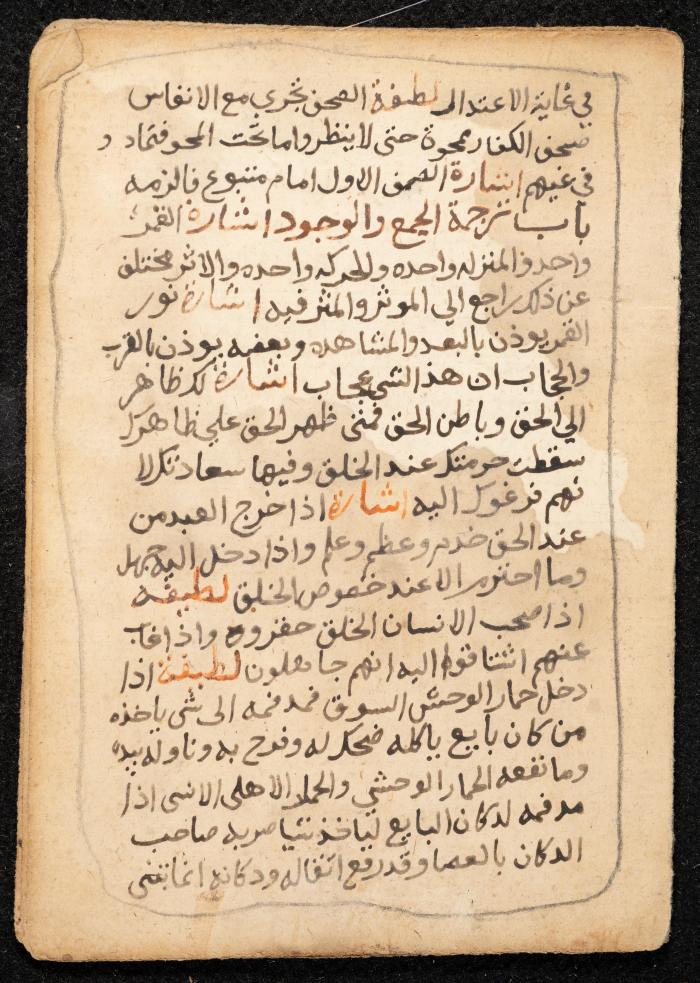 في غاية الاعتدال لطيفة الصحن تجري مع الانفاس
صحف الكفار ممحوة حتى لا ينظروا ما تحت المحو فتماد و
في غيهم اشارة الصف الاول امام متبوع فالزمه
باب ترجمة الجمع والوجود اشارة القمر
واحد والمنزله واحده والحركه واحده والاثر مختلف
عن ذلك راجع الي الموثر والمثر فيه اشارة نور
القمر يوذن بالبعد والمشاهده وبعضه يوذن بالقرب
والحجاب ان هذا لشي عجاب اشارة لك ظاهر
الي الخلق وباطن الحق فمتى ظهر الحق علي ظاهرك
سقطت حرمتك عند الخلق وفيها سعادتك لا
نهم فرغوك اليه اشارة اذا خرج العبد من
عند الحق خدم وعظم وعلم واذا دخل اليه جهل
وما احترم الا عند خصوص الخلق لطيفة
اذا صحب الانسان الخلق حقروه واذا غاب
عنهم اشتاقوا اليه انهم جاهلون لطيفة اذا
دخل حمار الوحش السوق فمد فمه الى شي ياخذه
من كان بايع ياكله ضحك له وفرح به وناوله بيده
وما نفعه الحمار الوحشي والحمار الاهلي الانسى اذا
مد فمه لدكان البايع لياخذ شيا ضربه صاحب
الدكان بالعصا وقد رفع اثقاله ودكانه انما تغنى